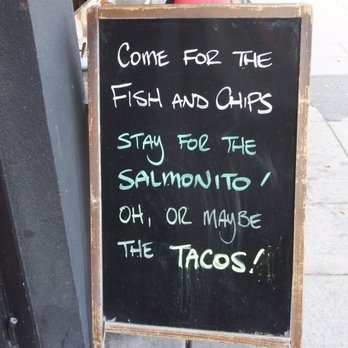 COME FOR THE
FISH AND CHIPS
STAY FOR THE
SALMONITO!
OH, OR MAYBE
THE TACOS!